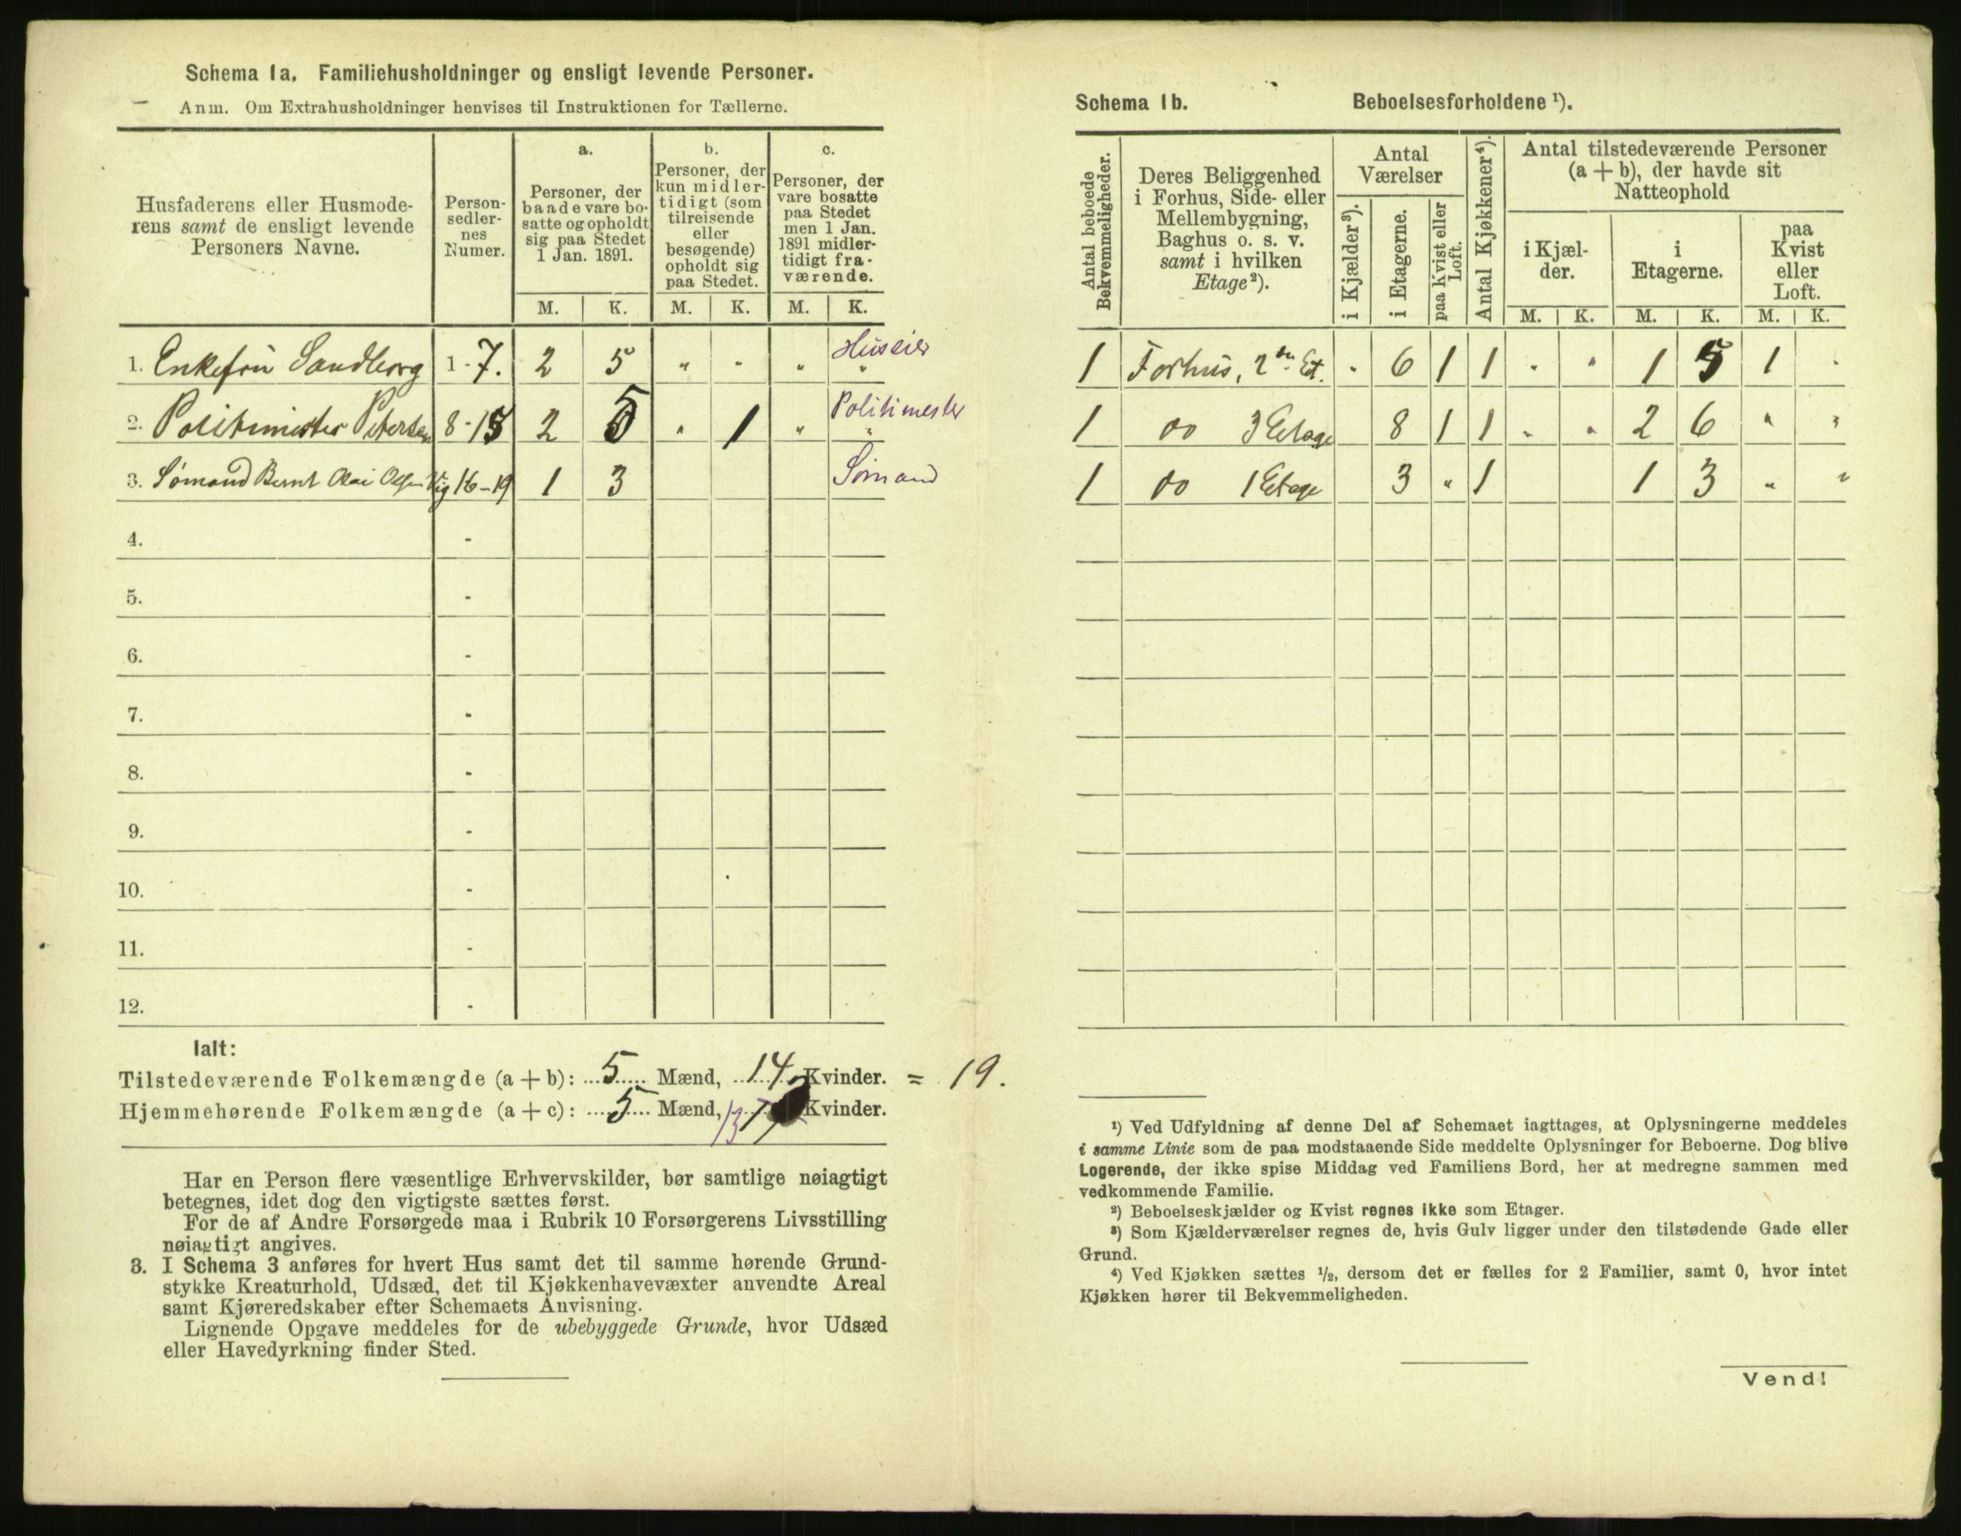 Schema 1a. Familiehusholdninger og ensligt levende Personer.
Anm. Om Extrahusholdninger henvises til Instruktionen for Tællerne.
Husfaderens eller Husmode-
rens samt de ensligt levende
Personers Navne.
Person-
sedler-
nes
Numer.
a.
Personer, der
baade vare bo-
satte og opholdt
sig paa Stedet
1 Jan. 1891.
b.
Personer, der
kun midler-
tidigt (som
tilreisende
eller
besøgende)
opholdt sig
paa Stedet.
c.
Personer, der
vare bosatte
paa Stedet
men 1 Jan.
1891 midler-
tidigt fra-
værende.
M. K. M. K. M. K.
1. Enkefru Sandberg 1 - 7. 2 5 " " " " Huseier
2. Politimester Petersen 8 - 15 2 5 " 1 " " Politimester
3. Sømand Bernt Olai Olsen Vig 16 - 19 1 3 Sømand
4. -
5. -
6. -
7. -
8. -
9. -
10. -
11. -
12. -
Ialt:
Tilstedeværende Folkemængde (a + b): 5 Mænd, 14 Kvinder. = 19.
Hjemmehørende Folkemængde (a + c): 5 Mænd, 13 Kvinder.
Har en Person flere væsentlige Erhvervskilder, bør samtlige nøiagtigt
betegnes, idet dog den vigtigste sættes først.
For de af Andre Forsørgede maa i Rubrik 10 Forsørgerens Livsstilling
nøiagtigt angives.
3. I Schema 3 anføres for hvert Hus samt det til samme hørende Grund-
stykke Kreaturhold, Udsæd, det til Kjøkkenhavevæxter anvendte Areal
samt Kjøreredskaber efter Schemaets Anvisning.
Lignende Opgave meddeles for de ubebyggede Grunde, hvor Udsæd
eller Havedyrkning finder Sted.
Schema 1b. Beboelsesforholdene ¹).
Antal beboede
Bekvemmeligheder.
Deres Beliggenhed
i Forhus, Side- eller
Mellembygning,
Baghus o. s. v.
samt i hvilken
Etage ²).
Antal
Værelser
i Kjælder ³).
i Etagerne.
paa Kvist eller
Loft.
Antal Kjøkkener ⁴).
Antal tilstedeværende Personer
(a + b), der havde sit
Natteophold
i Kjæl-
der.
i
Etagerne.
paa
Kvist
eller
Loft.
M. K. M. K. M. K.
1 Forhus, 2den Et. " 6 1 1 " " 1 5 1 "
1 do 3 Etage 8 1 1 " " 2 6 " "
1 do 1 Etage 3 " 1 1 3 " "
¹) Ved Udfyldning af denne Del af Schemaet iagttages, at Oplysningerne meddeles
i samme Linie som de paa modstaaende Side meddelte Oplysninger for Beboerne. Dog blive
Logerende, der ikke spise Middag ved Familiens Bord, her at medregne sammen med
vedkommende Familie.
²) Beboelseskjælder og Kvist regnes ikke som Etager.
³) Som Kjælderværelser regnes de, hvis Gulv ligger under den tilstødende Gade eller
Grund.
⁴) Ved Kjøkken sættes ½, dersom det er fælles for 2 Familier, samt 0, hvor intet
Kjøkken hører til Bekvemmeligheden.
Vend!